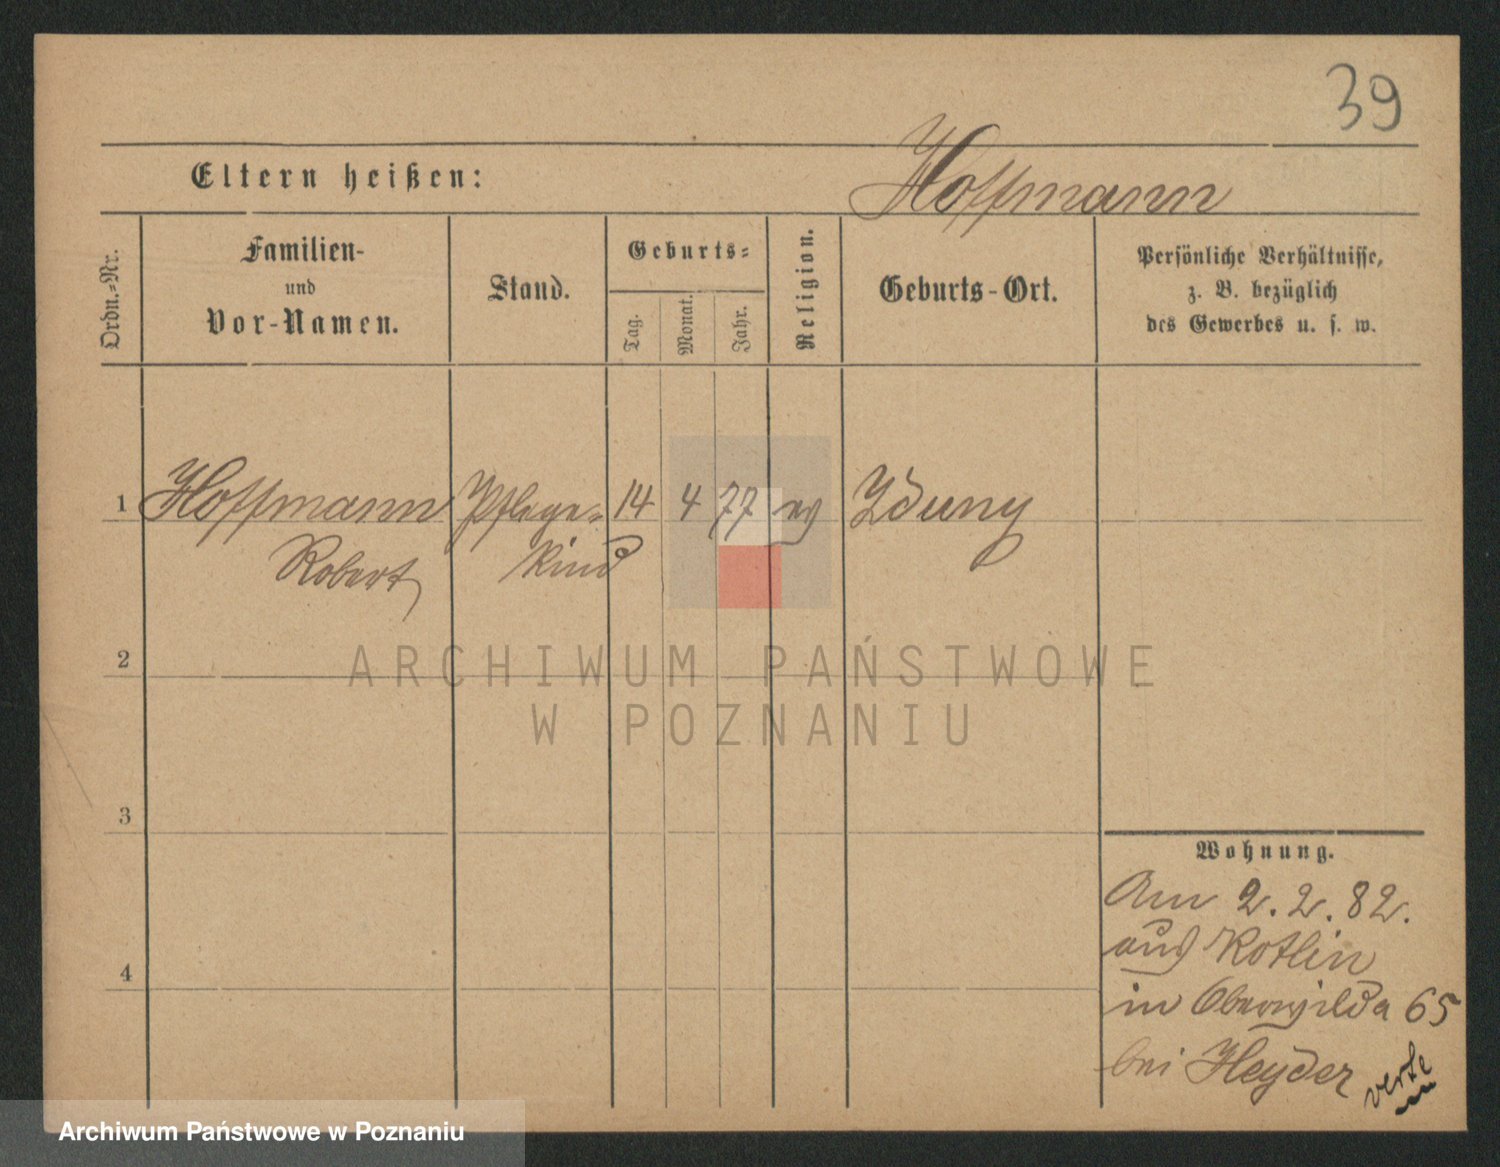 39
Eltern heißen: Hoffmann
Ordn.-Nr.
Familien-
und
Vor-Namen.
Stand.
Geburts-
Tag.
Monat.
Jahr.
Religion.
Geburts-Ort.
Persönliche Verhältnisse,
z. B. bezüglich
des Gewerbes u. s. w.
1 Hoffmann Pflege- 14 4 77 ev Zduny
Robert kind
2
ARCHIWUM PAŃSTWOWE
W POZNANIU
3
Wohnung.
Am 2. 2. 82.
aus Kotlin
4
in Oberwilda 65
bei Heyder
verte
Archiwum Państwowe w Poznaniu